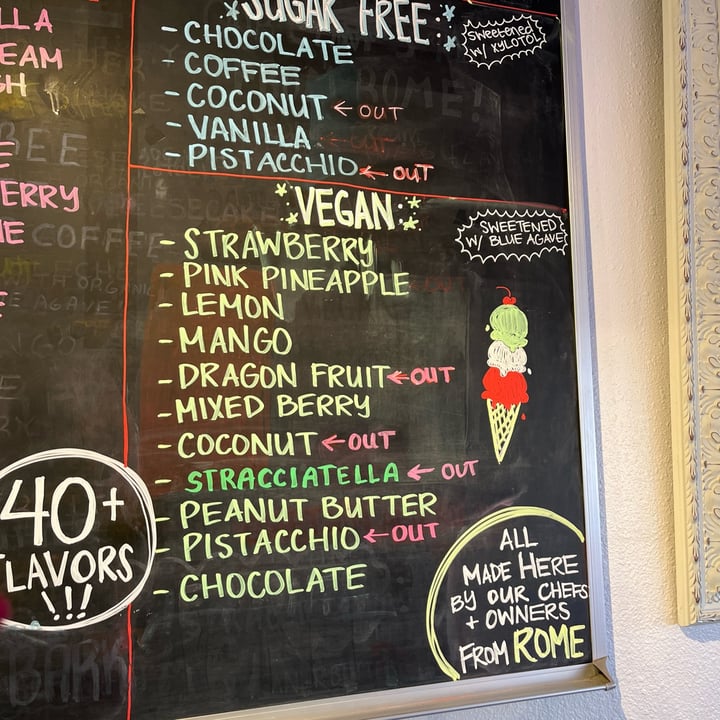 SUGAR FREE
SWEETENED
W/ XYLOTOL
- CHOCOLATE
- COFFEE
- COCONUT ← OUT
- VANILLA
- PISTACCHIO ← OUT
VEGAN
SWEETENED
W/ BLUE AGAVE
- STRAWBERRY
- PINK PINEAPPLE
- LEMON
- MANGO
- DRAGON FRUIT ← OUT
- MIXED BERRY
- COCONUT ← OUT
- STRACCIATELLA ← OUT
- PEANUT BUTTER
- PISTACCHIO ← OUT
- CHOCOLATE
40+
FLAVORS
!!!
ALL
MADE HERE
BY OUR CHEFS
+ OWNERS
FROM ROME